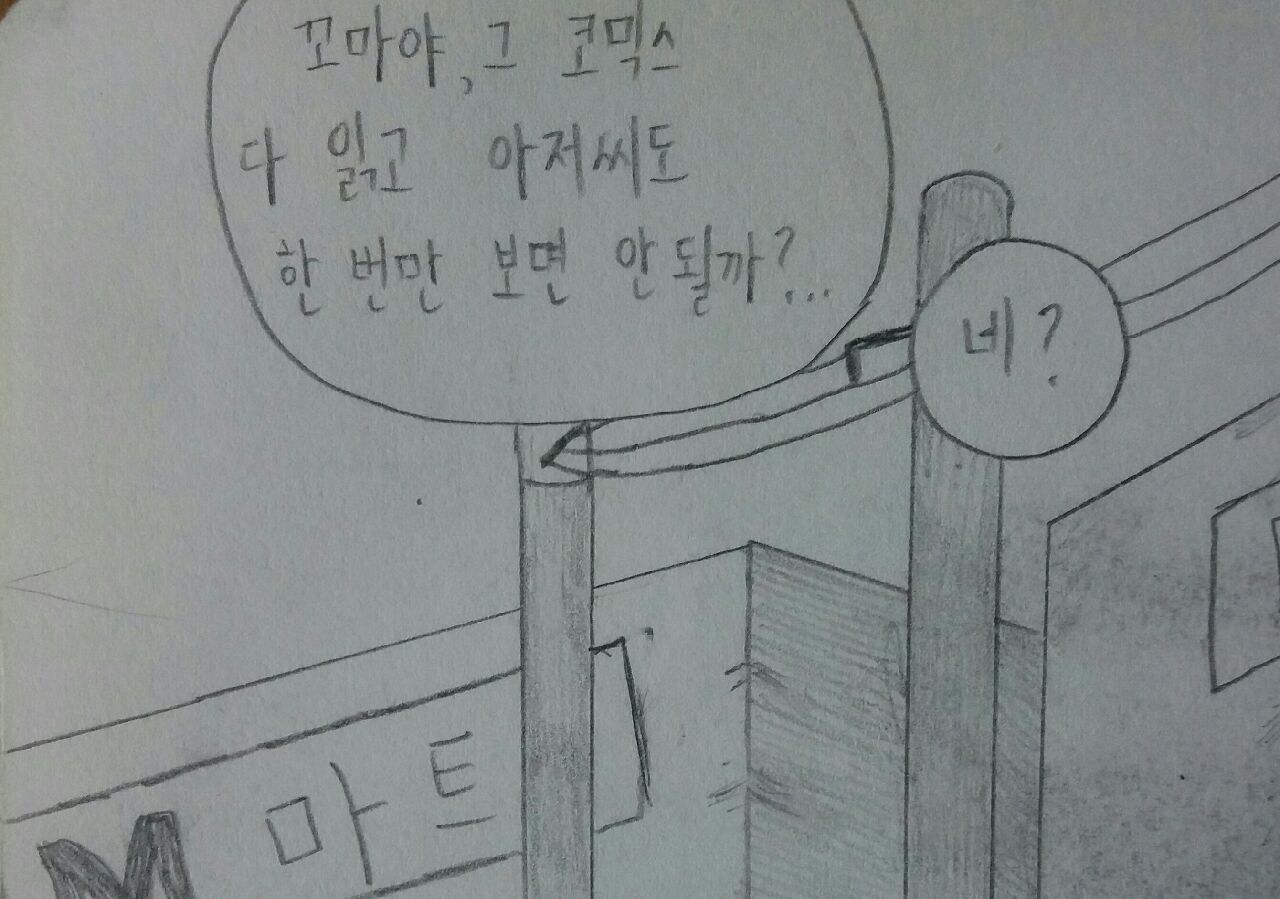 꼬마야, 그 코믹스
다 읽고 아저씨도
한 번만 보면 안 될까?...
네?
M 마트